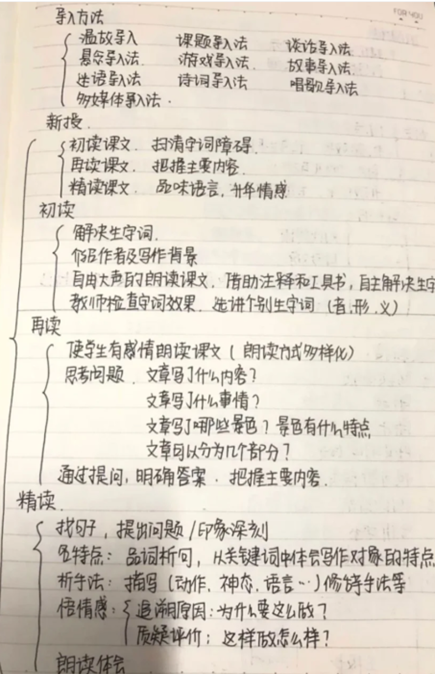 导入方法
温故导入 课题导入法 谈话导入法
悬念导入法 游戏导入法 故事导入法
谜语导入法 诗词导入法 唱歌导入法
多媒体导入法.
新授.
初读课文. 扫清字词障碍.
再读课文. 把握主要内容.
精读课文. 品味语言,升华情感
初读
解决生字词.
介绍作者及写作背景
自由大声的朗读课文,借助注释和工具书,自主解决生字
教师检查字词效果. 选讲个别生字词(音.形.义)
再读
使学生有感情朗读课文(朗读方式多样化)
思考问题. 文章写了什么内容?
文章写了什么事情?
文章写了哪些景色?景色有什么特点
文章可以分为几个部分?
通过提问,明确答案. 把握主要内容.
精读.
找句子,提出问题/印象深刻
特点:品词析句,从关键词中体会写作对象的特点
析手法:描写(动作、神态、语言…)修辞手法等
悟情感:追溯原因:为什么要这么做?
质疑评价:这样做怎么样?
朗读体会